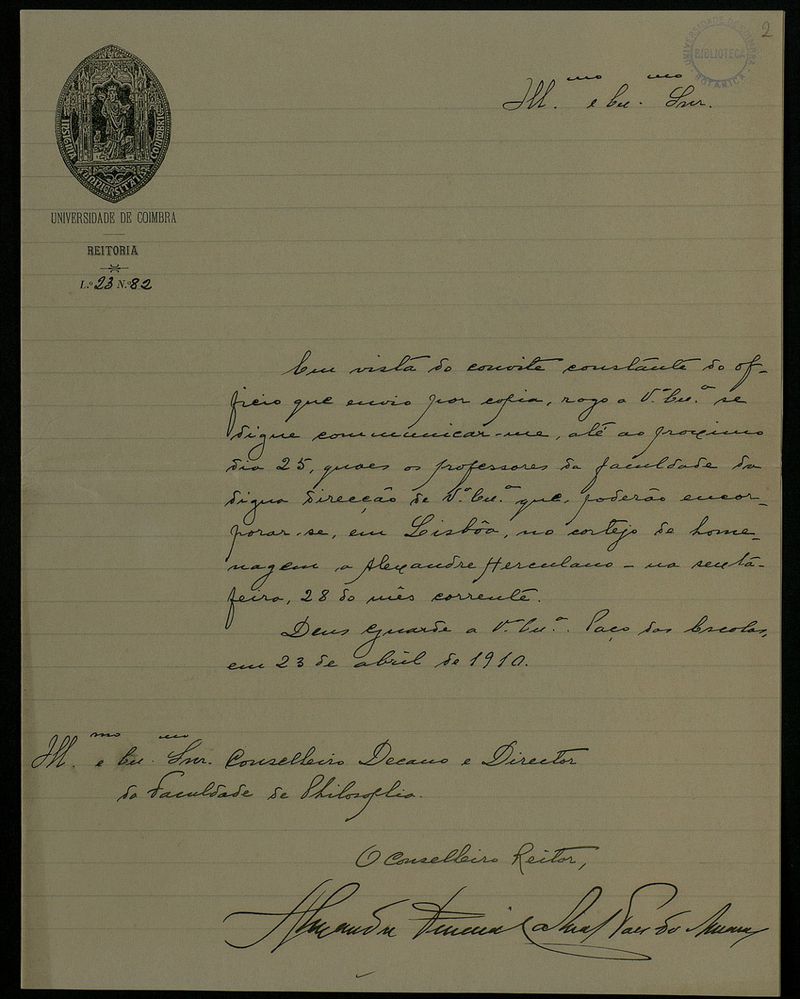 2
UNIVERSIDADE DE COIMBRA
BIBLIOTECA
BOTANICA
Ill.mo e Ex.mo Snr.
INSIGNIA UNIVERSITATIS CONIMBRIG
UNIVERSIDADE DE COIMBRA
REITORIA
L.º 23 N.º 82
Em vista do convite constante do of-
ficio que envio por copia, rogo a V.ª Ex.ª se
digne communicar-me, até ao proximo
dia 25, quaes os professores da faculdade da
digna direcção de V.ª Ex.ª que poderão encor-
porar-se, em Lisbôa, no cortejo de home-
nagem a Alexandre Herculano - na sexta-
feira, 28 do mês corrente.
Deus Guarde a V.ª Ex.ª. Paço das Escolas,
em 23 de abril de 1910.
Ill.mo e Ex.mo Snr. Conselheiro Decano e Director
da Faculdade de Philosophia.
O Conselheiro Reitor,
Alexandre